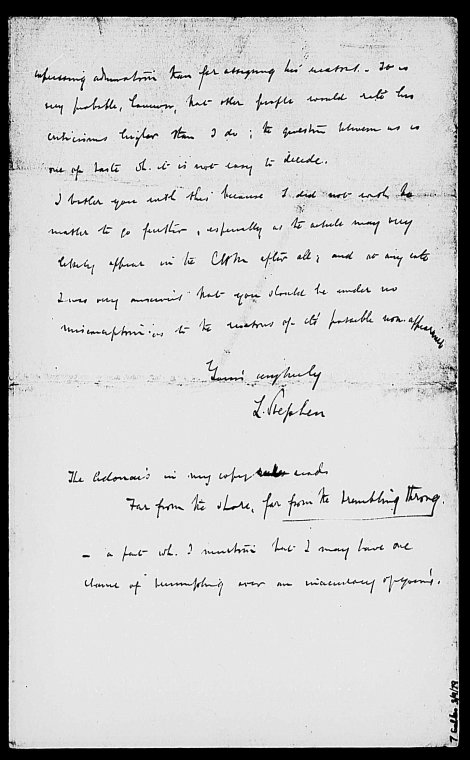 expressing admiration than for assigning his reasons. It is
very probable, however, that other people would rate his
criticisms higher than I do; the question between us is
one of taste wh. it is not easy to decide.
I bother you with this because I did not wish the
matter to go further, especially as the article may very
likely appear in the CHM after all; and at any rate
I was very anxious that you should be under no
misconception as to the reasons of its possible non-appearance
Yours very truly
L. Stephen
The Adonais in my copy ends
Far from the shore, far from the trembling throng.
– a fact wh. I mention that I may have one
chance of triumphing over an inaccuracy of yours.